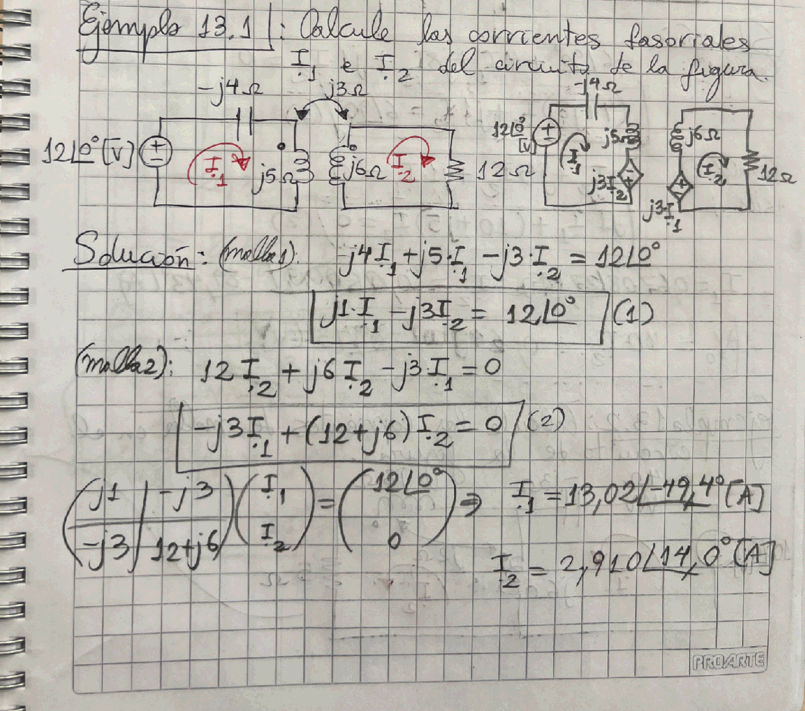 Ejemplo 13.1 : Calcule las corrientes fasoriales
I₁ e I₂ del circuito de la figura.
-j4Ω
j3Ω
12∠0° [V]
I₁
j5Ω
j6Ω
I₂
12Ω
-j4Ω
12∠0° [V]
I₁
j5Ω
j3I₂
j6Ω
I₂
j3I₁
12Ω
Solución: (malla 1): -j4I₁ + j5·I₁ - j3·I₂ = 12∠0°
j1·I₁ - j3I₂ = 12∠0° (1)
(malla 2): 12I₂ + j6I₂ - j3·I₁ = 0
-j3I₁ + (12+j6)I₂ = 0 (2)
(j1 | -j3) (I₁) = (12∠0°) ⇒ I₁ = 13,02∠-49,4° [A]
(-j3 | 12+j6) (I₂) (0)
I₂ = 2,910∠14,0° [A]
PROARTE